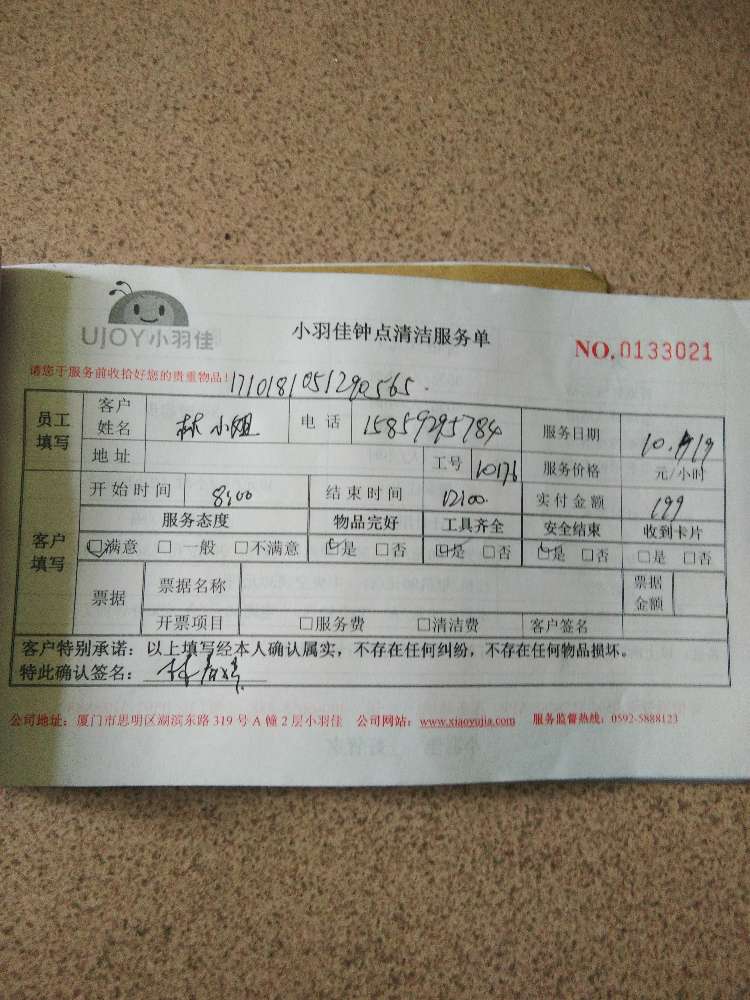 UJOY小羽佳
小羽佳钟点清洁服务单
NO.0133021
请您于服务前收拾好您的贵重物品!
1710181051290565.
员工填写 客户姓名 林小姐 电话 15859295784 服务日期 10.19
地址 工号 10176 服务价格 元/小时
客户填写 开始时间 8:00 结束时间 12:00 实付金额 199
服务态度 物品完好 工具齐全 安全结束 收到卡片
☑满意 □一般 □不满意 ☑是 □否 ☑是 □否 ☑是 □否 □是 □否
票据 票据名称 票据金额
开票项目 □服务费 □清洁费 客户签名
客户特别承诺:以上填写经本人确认属实,不存在任何纠纷,不存在任何物品损坏。
特此确认签名:
公司地址:厦门市思明区湖滨东路319号A幢2层小羽佳 公司网站:www.xiaoyujia.com 服务监督热线:0592-5888123